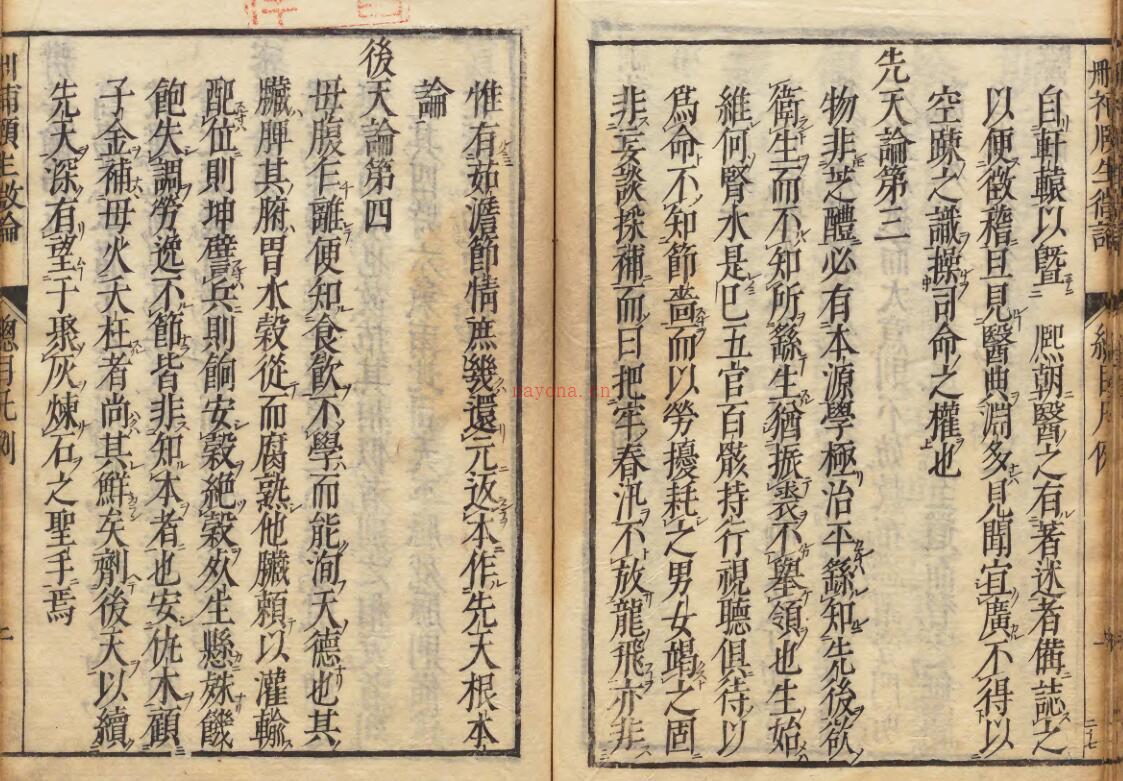 自軒轅以曁　熈朝醫之有著述者備誌之
以便徴稽且見醫典淵多見聞宜廣不得以
空踈之識操司命之權也
先天論第三
物非芝醴必有本源學極治平繇知先後欲
衛生而不知所繇生猶振裘不挈領也生始
維何腎水是已五官百骸持行視聽俱待以
爲命不知節嗇而以勞擾耗之男女竭之固
非妄談採補而曰把牢春汛不放龍飛亦非
惟有茹澹節情庶幾還元返本作先天根本
論
後天論第四
母腹乍離便知食飲不學而能洵天德也其
臟脾其腑胃水穀從而腐熟他臟頼以灌輸
配位則坤譬兵則餉安穀絶穀死生懸殊饑
飽失調勞逸不節皆非知本者也安仇木顧
子金補母火夭枉者尚其鮮矣劑後天以續
先天深有望于聚灰煉石之聖手焉
nayona.cn